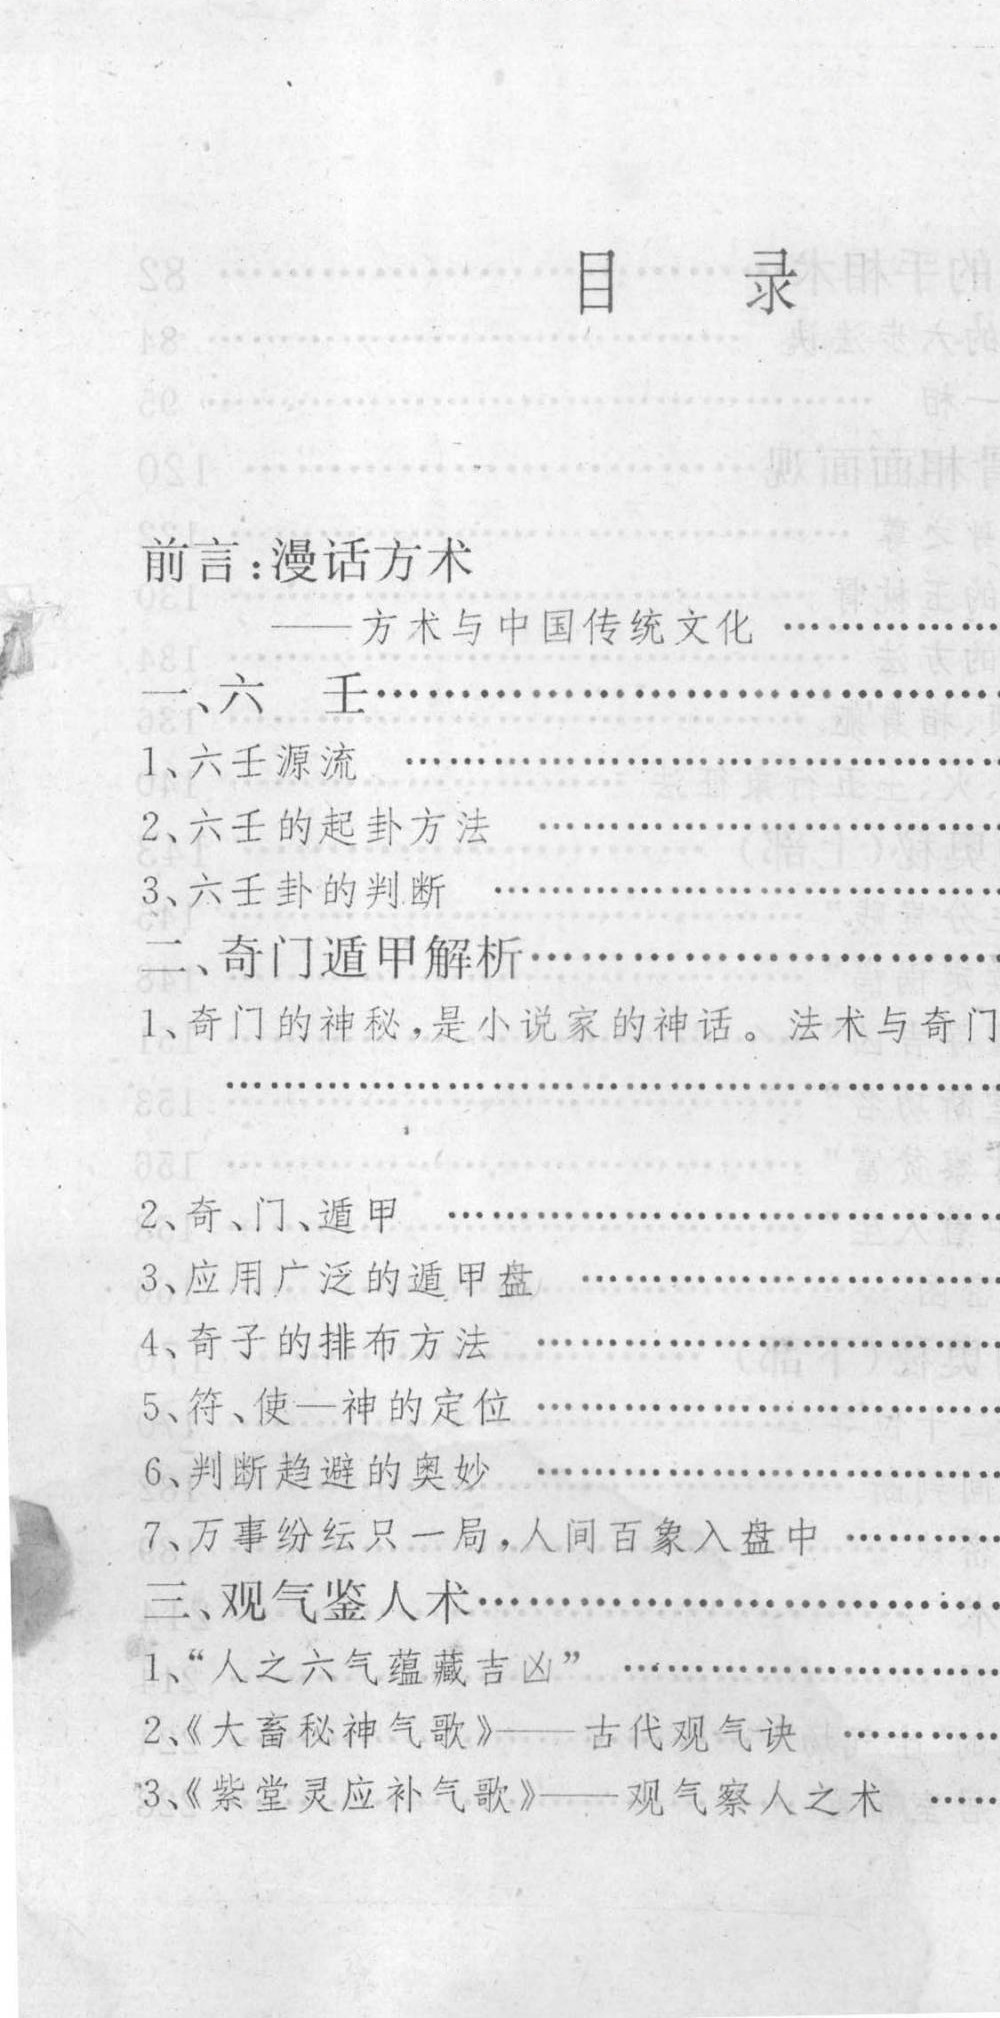 目 录
前言：漫话方术
——方术与中国传统文化 ……………
一、六 壬……………………………
1、六壬源流 ……………………………
2、六壬的起卦方法 ……………………
3、六壬卦的判断 ………………………
二、奇门遁甲解析……………………
1、奇门的神秘，是小说家的神话。法术与奇门
………………………………………
2、奇、门、遁甲 …………………………
3、应用广泛的遁甲盘 …………………
4、奇子的排布方法 ……………………
5、符、使—神的定位 ……………………
6、判断趋避的奥妙 ……………………
7、万事纷纭只一局，人间百象入盘中 ………
三、观气鉴人术………………………
1、“人之六气蕴藏吉凶” ………………
2、《大畜秘神气歌》——古代观气诀 ………
3、《紫堂灵应补气歌》——观气察人之术 ……